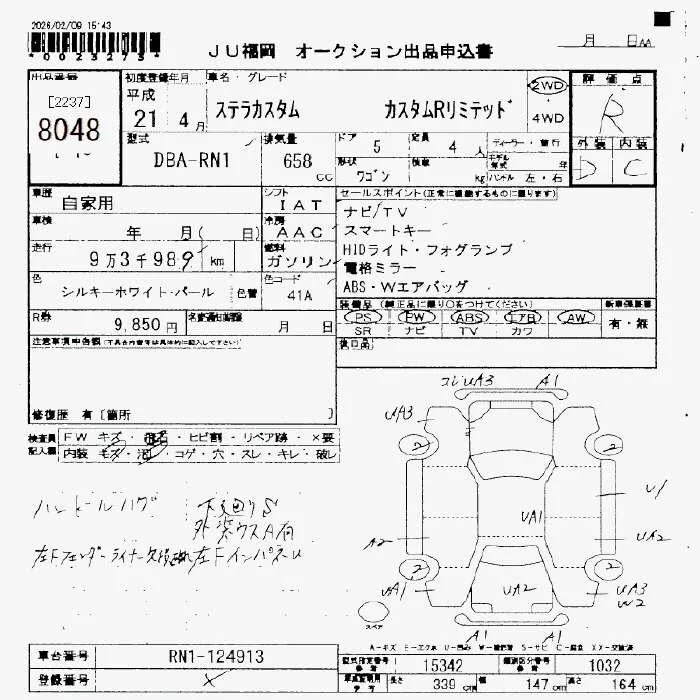 2026/02/09 15:43
*0023273*
JU福岡 オークション出品申込書
月 日 AA
出品番号
[2237]
8048
初度登録年月
平成
21 4月
車名・グレード
ステラカスタム カスタムRリミテッド
2WD
4WD
評価点
R
外装 内装
D C
型式
DBA-RN1
排気量
658 CC
ドア 5
定員 4 人
形状 ワゴン
積載 kg
ディーラー・並行
モデル年式 年
ハンドル 左・右
車歴
自家用
シフト
IAT
セールスポイント(正常に機能するものに限ります)
ナビ/TV
スマートキー
HIDライト・フォグランプ
電格ミラー
ABS・Wエアバッグ
車検
年 月( 日)
冷房
AAC
走行
9万3千989 km
燃料
ガソリン
色
シルキーホワイト・パール 色替
色コード
41A
装備品(純正品に限り○をつけてください)
新車保証書
PS PW ABS エアB AW
SR ナビ TV カワ
有・無
R券
9,850円
名変期限
月 日
後日品
注意事項申告欄(不具合内容等は具体的に記入して下さい)
修復歴 有〔箇所 〕
検査員記入欄
FW キズ・飛石・ヒビ割・リペア跡・×要
内装 キズ・汚・コゲ・穴・スレ・キレ・破レ
ハンドルハゲ
下廻りS
外装ウスA有
左Fフェンダーライナー欠損
左FインパネU
コシUA3 A1
UA3
2 2
U1
UA1
A2 UA2
2 2
UA1 UA2 UA3
W2
スペア
A1 A1
A-キズ E-エクボ U-凹み W-補修跡 S-サビ C-腐食 XX-交換済
車台番号 RN1-124913
登録番号 ×
型式指定番号 15342
類別区分番号 1032
長さ 339 cm 幅 147 cm 高さ 164 cm